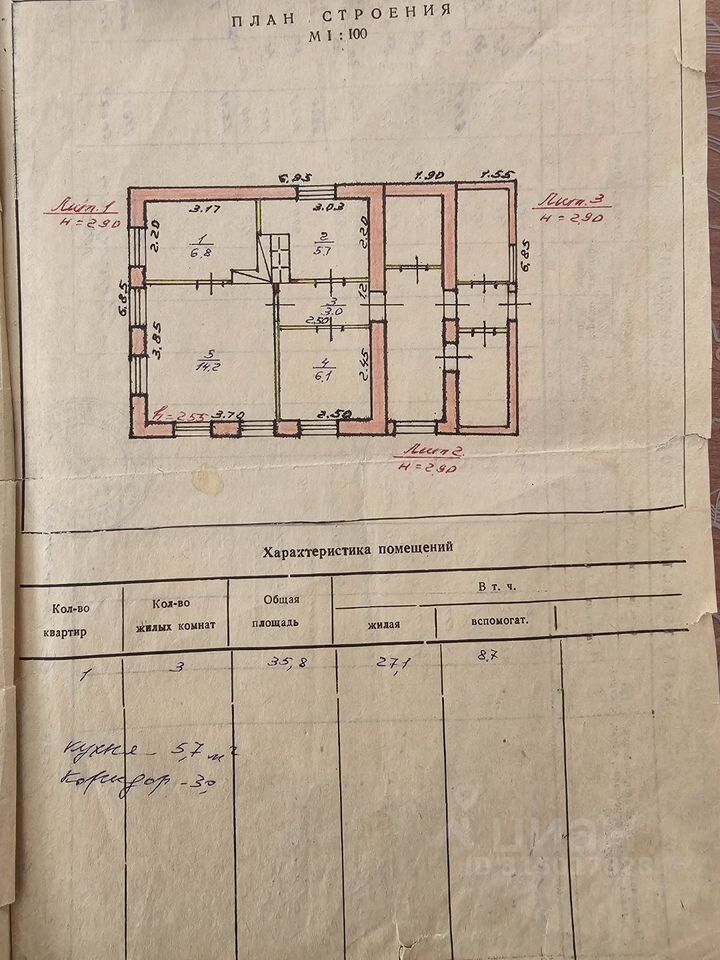 ПЛАН СТРОЕНИЯ
М 1 : 100
6.95 1.90 1.55
Лит. 1 Лит. 3
H = 2,90 H = 2,90
3.17 3.03
2.20 1 2 2.20
6,8 5.7
6.85 6,85
3 12
3.0
2.50
3.85 5 4 2.45
14,2 6,1
h = 255 3.70 2.50
Лит 2
H = 2,90
Характеристика помещений
Кол-во квартир Кол-во жилых комнат Общая площадь В т. ч.
жилая вспомогат.
1 3 35,8 27,1 8,7
кухня - 5,7 м²
коридор - 3,0
циан